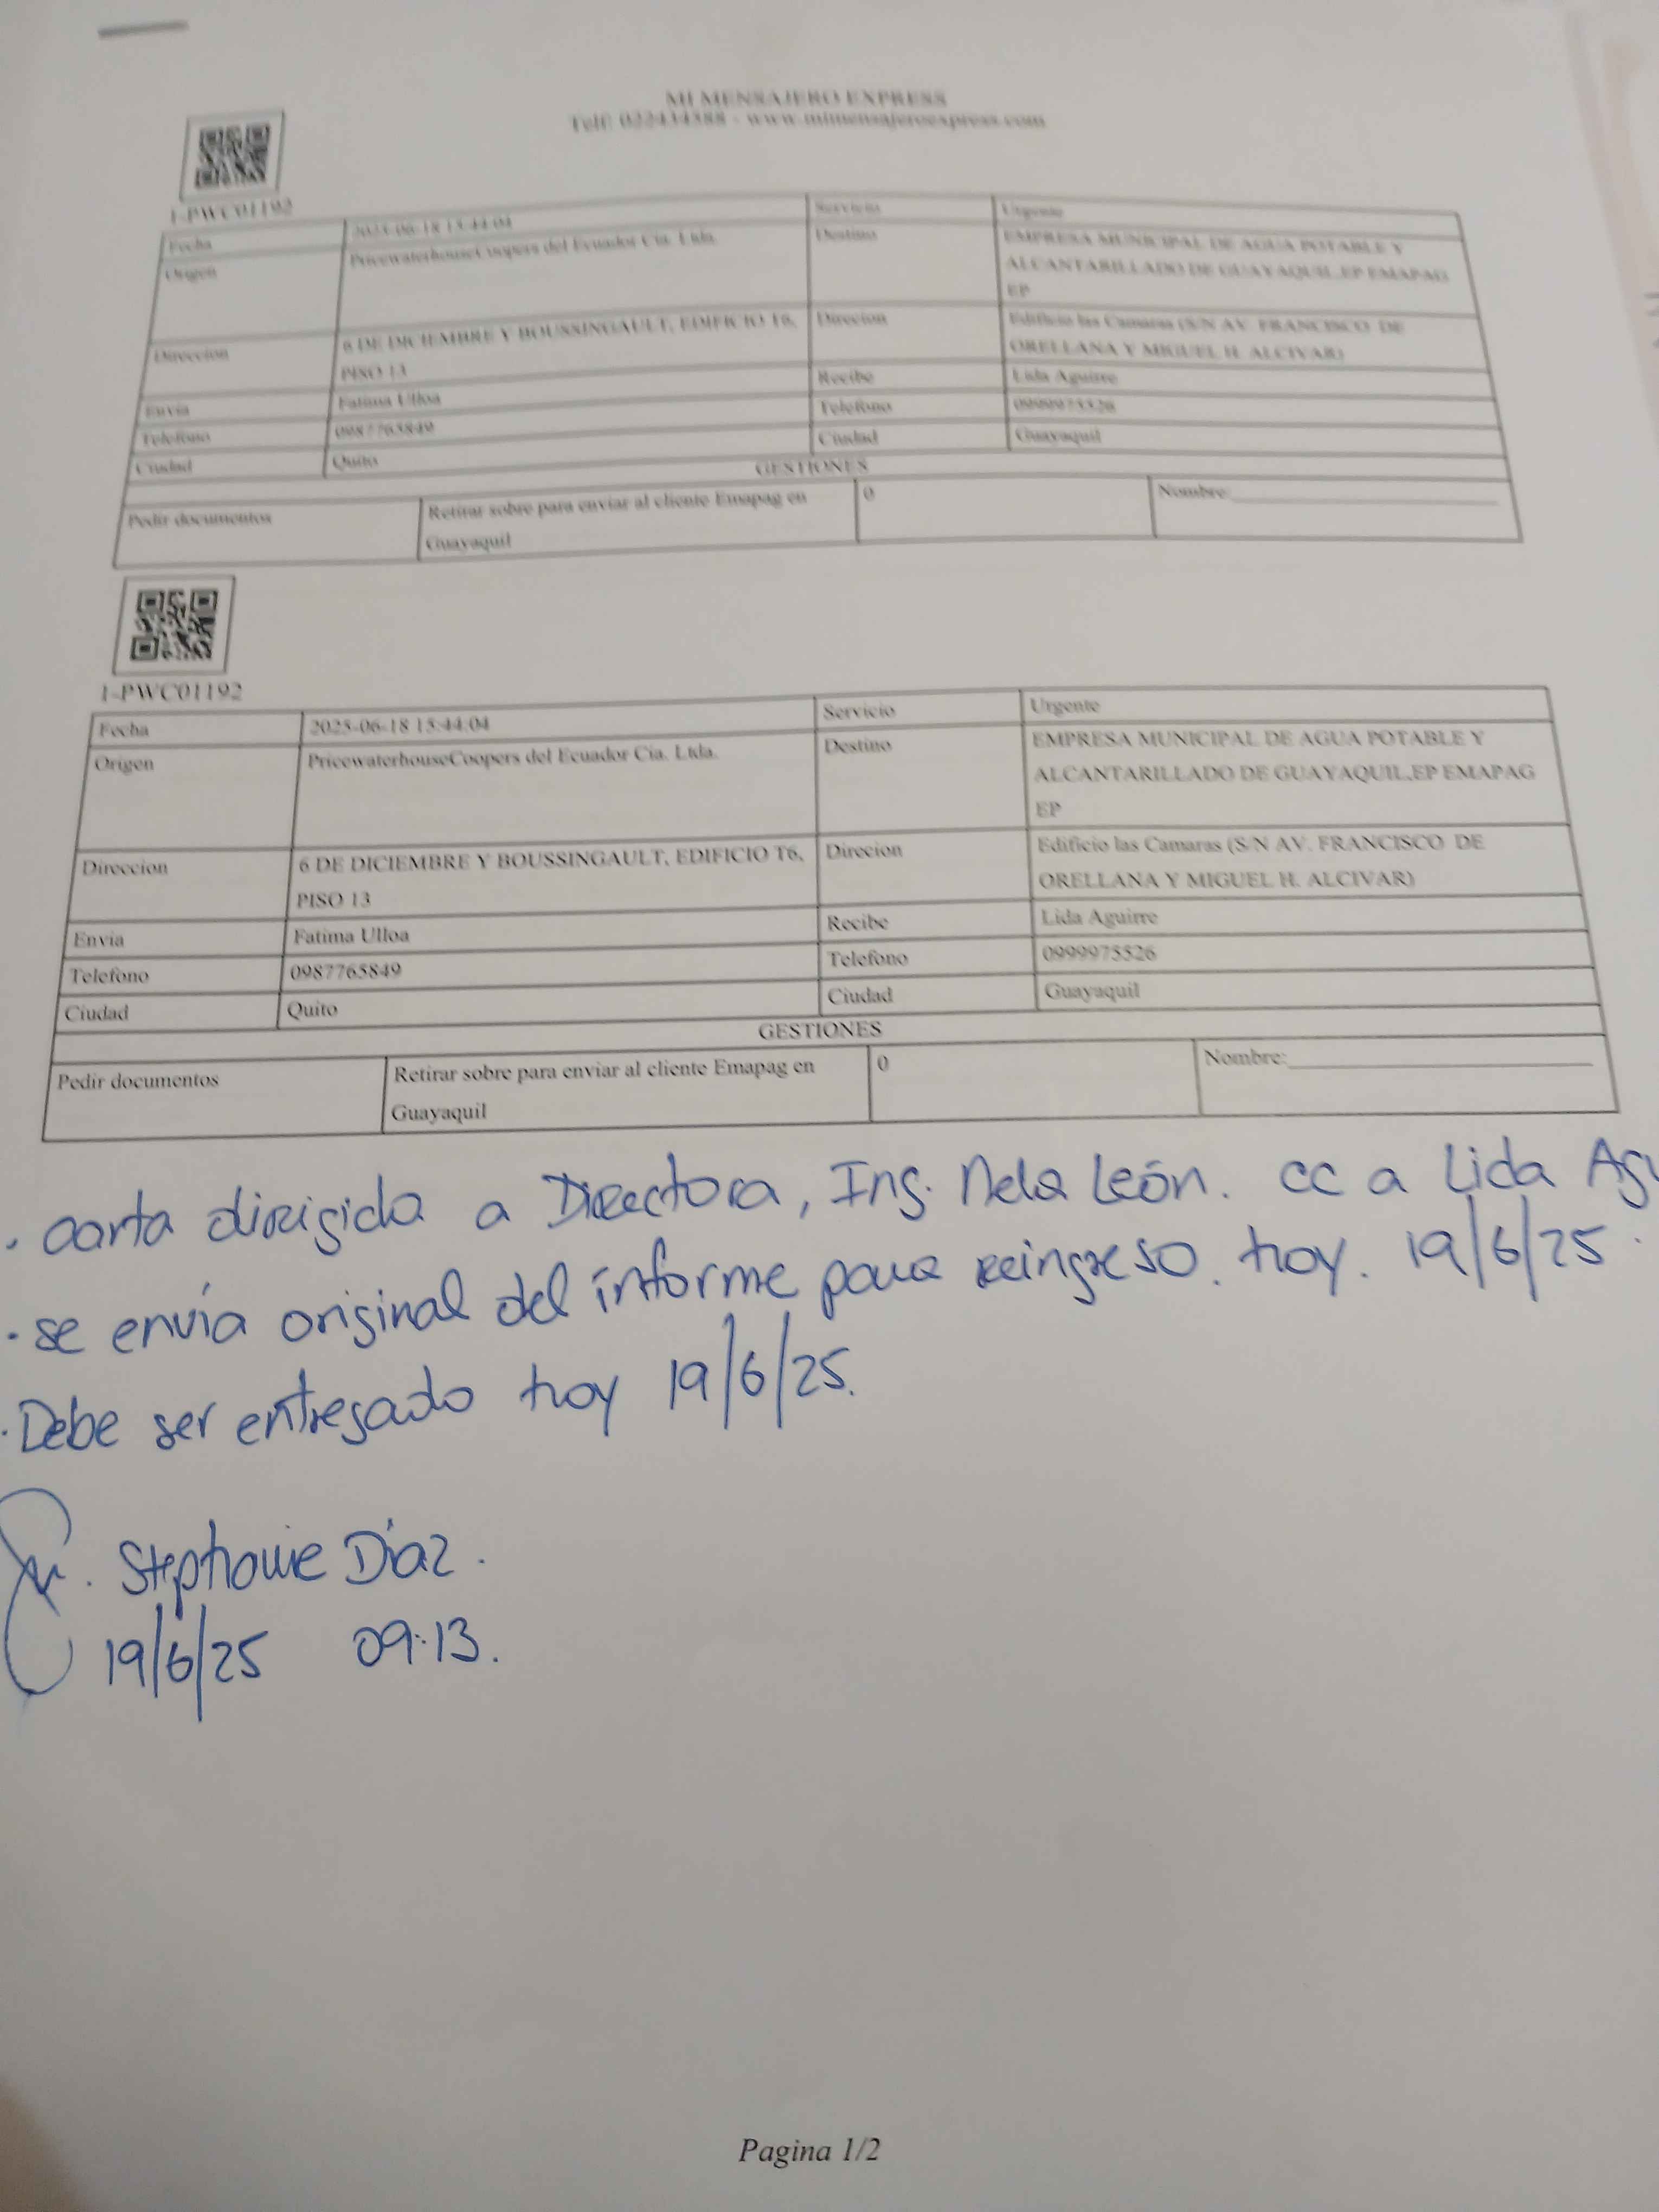 MI MENSAJERO EXPRESS
Telf: 022434388 - www.mimensajeroexpress.com
1-PWC01192
Fecha 2025-06-18 15:44:04 Servicio Urgente
Origen PricewaterhouseCoopers del Ecuador Cia. Ltda. Destino EMPRESA MUNICIPAL DE AGUA POTABLE Y
ALCANTARILLADO DE GUAYAQUIL,EP EMAPAG
EP
Direccion 6 DE DICIEMBRE Y BOUSSINGAULT, EDIFICIO T6, Direcion Edificio las Camaras (S/N AV. FRANCISCO DE
PISO 13 ORELLANA Y MIGUEL H. ALCIVAR)
Envia Fatima Ulloa Recibe Lida Aguirre
Telefono 0987765849 Telefono 0999975526
Ciudad Quito Ciudad Guayaquil
GESTIONES
Pedir documentos Retirar sobre para enviar al cliente Emapag en 0 Nombre:
Guayaquil
1-PWC01192
Fecha 2025-06-18 15:44:04 Servicio Urgente
Origen PricewaterhouseCoopers del Ecuador Cia. Ltda. Destino EMPRESA MUNICIPAL DE AGUA POTABLE Y
ALCANTARILLADO DE GUAYAQUIL,EP EMAPAG
EP
Direccion 6 DE DICIEMBRE Y BOUSSINGAULT, EDIFICIO T6, Direcion Edificio las Camaras (S/N AV. FRANCISCO DE
PISO 13 ORELLANA Y MIGUEL H. ALCIVAR)
Envia Fatima Ulloa Recibe Lida Aguirre
Telefono 0987765849 Telefono 0999975526
Ciudad Quito Ciudad Guayaquil
GESTIONES
Pedir documentos Retirar sobre para enviar al cliente Emapag en 0 Nombre:
Guayaquil
. carta dirigida a Directora, Ing. Nela León. cc a Lida Agu
. se envía original del informe para reingreso. hoy. 19/6/25.
. Debe ser entregado hoy 19/6/25.
Stephanie Díaz.
19/6/25 09:13.
Pagina 1/2